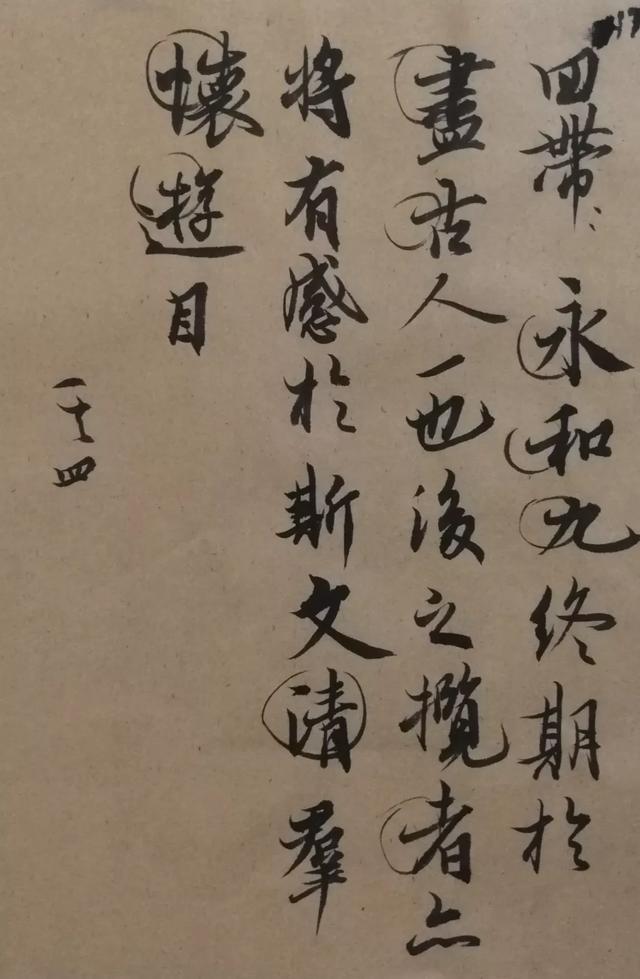 田帶：永和九終期於
盡古人一也後之攬者亦
將有感於斯文清羣
懷遊目